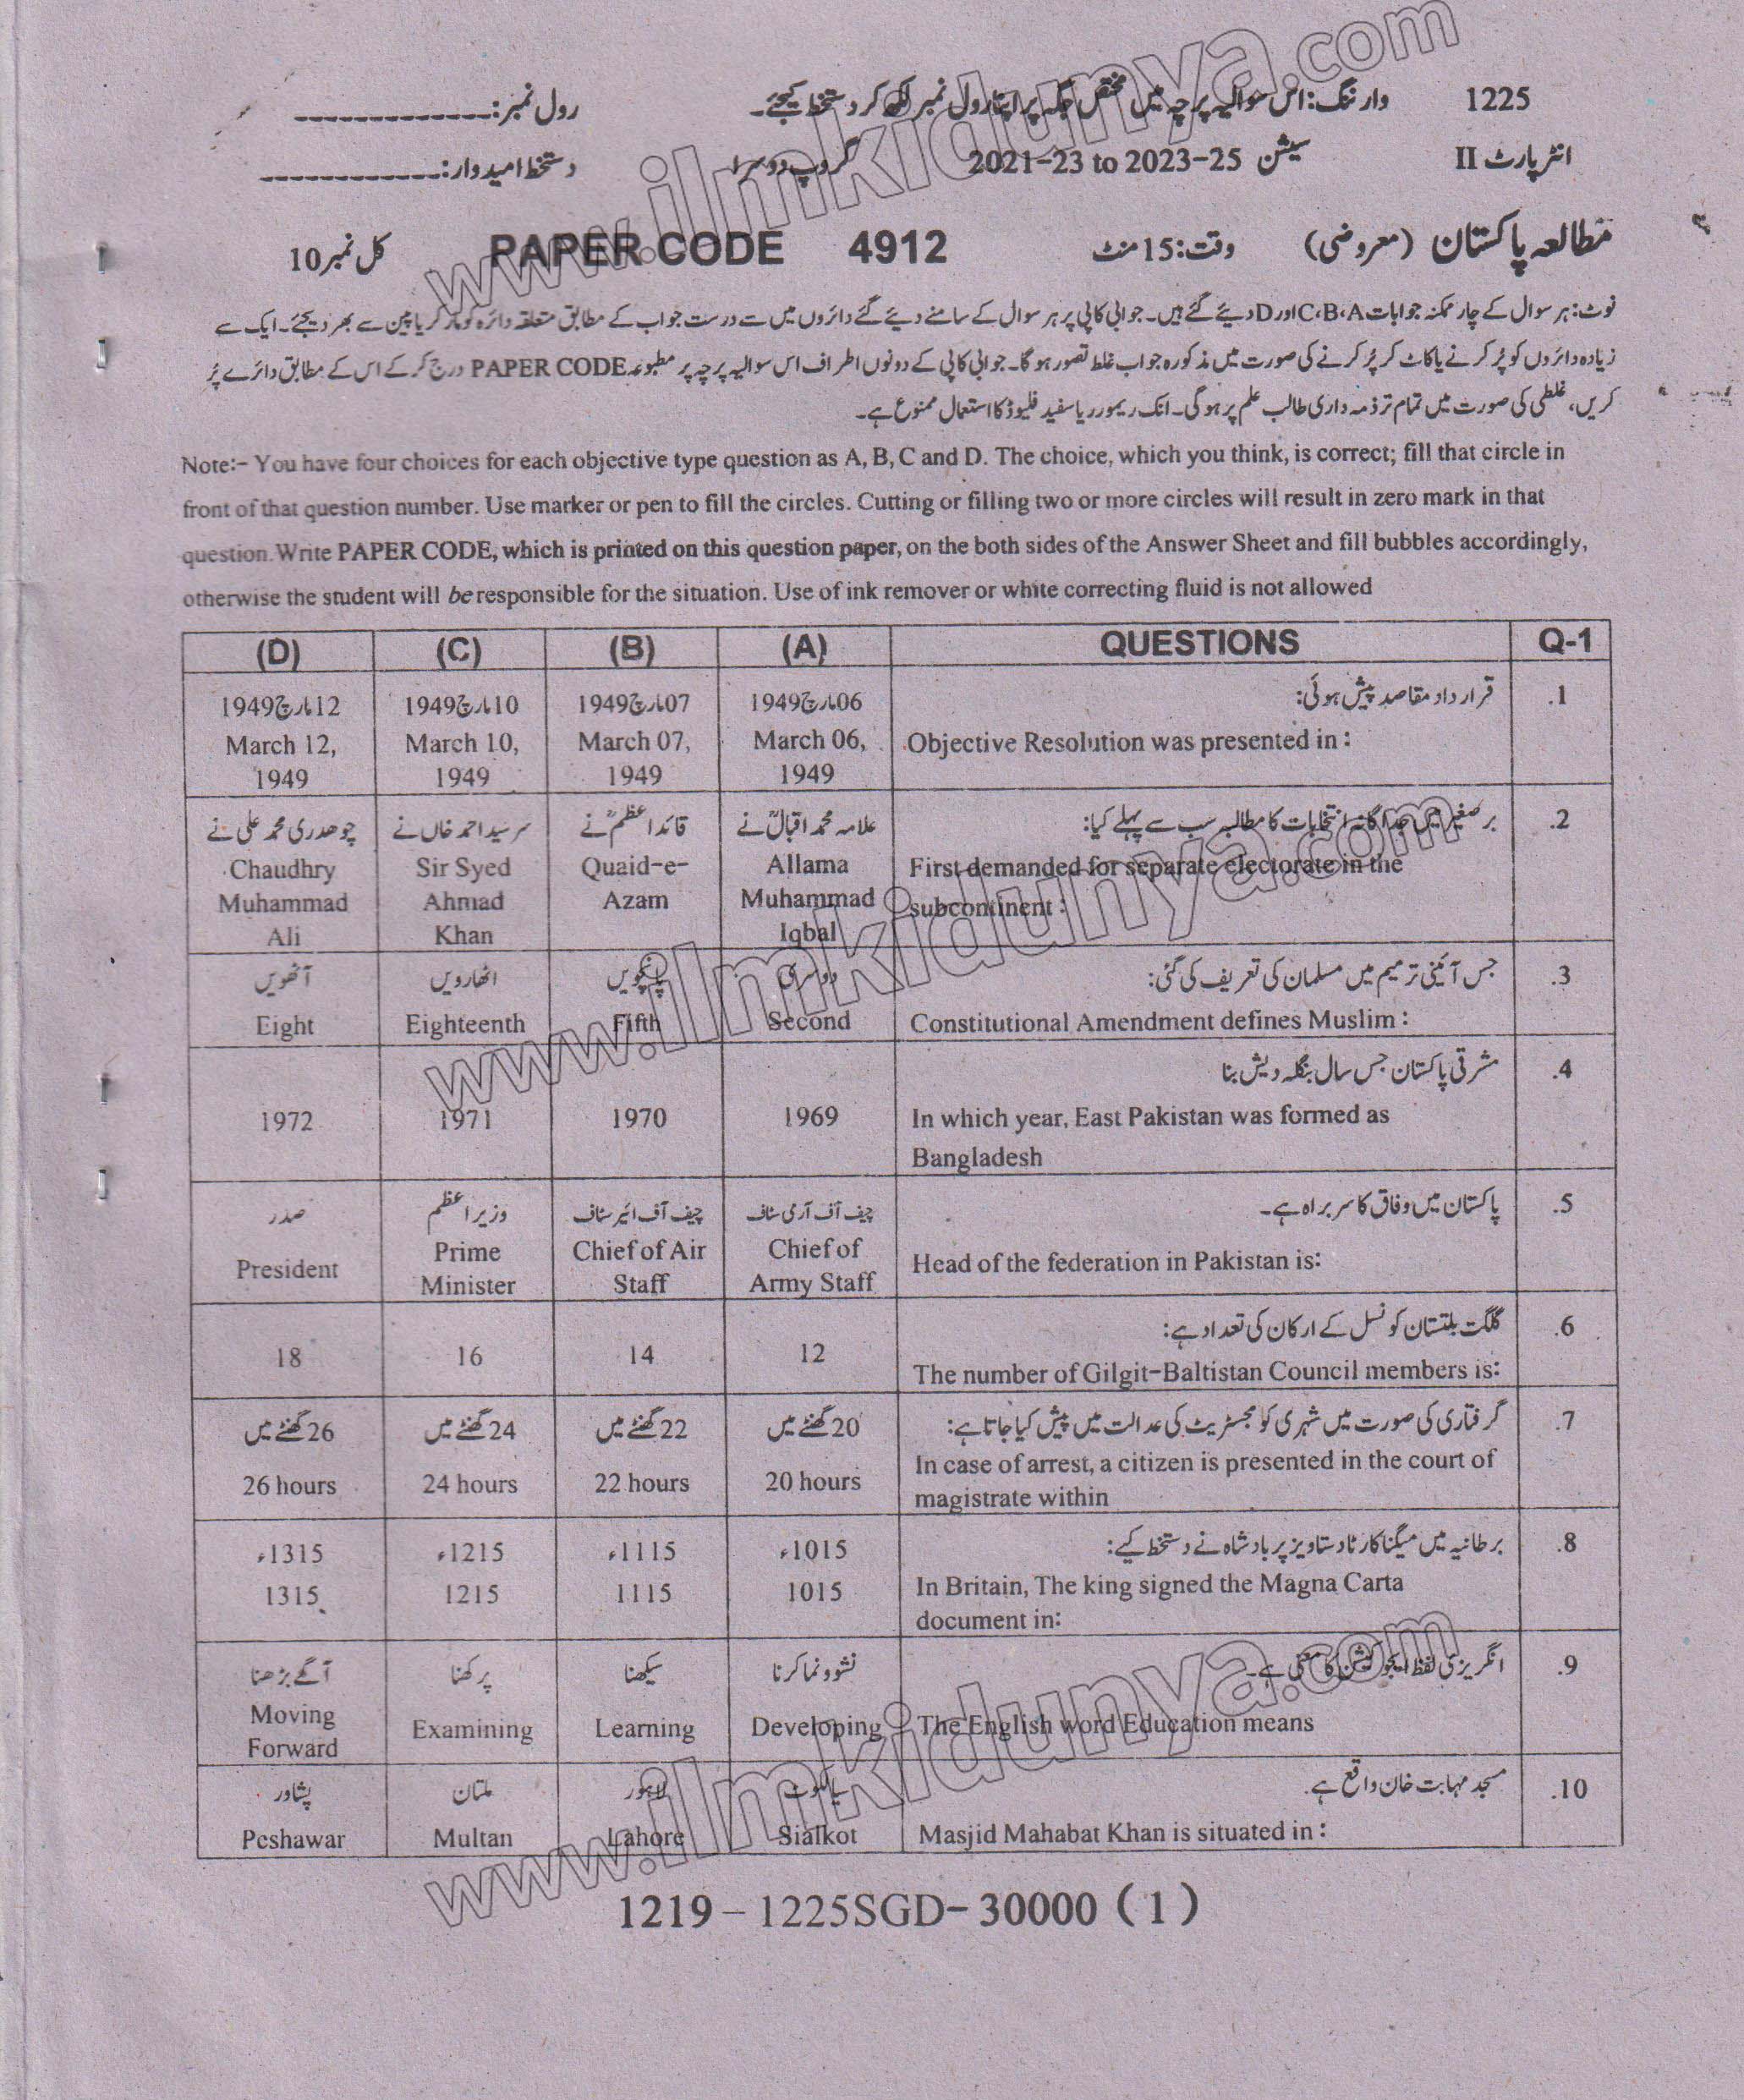 1225 وارننگ: اس سوالیہ پرچہ میں مختص جگہ پر اپنا رول نمبر لکھ کر دستخط کیجئے۔ رول نمبر:--------------
انٹر پارٹ II سیشن 2021-23 to 2023-25 گروپ دوسرا دستخط امیدوار:-------------
مطالعہ پاکستان (معروضی) وقت:15 منٹ PAPER CODE 4912 کل نمبر10
نوٹ: ہر سوال کے چار ممکنہ جوابات C،B،A اور D دیئے گئے ہیں۔ جوابی کاپی پر ہر سوال کے سامنے دیئے گئے دائروں میں سے درست جواب کے مطابق متعلقہ دائرہ کو مارکر یا پین سے بھر دیجئے۔ ایک سے
زیادہ دائروں کو پُر کرنے یا کاٹ کر پُر کرنے کی صورت میں مذکورہ جواب غلط تصور ہو گا۔ جوابی کاپی کے دونوں اطراف اس سوالیہ پرچہ پر مطبوعہ PAPER CODE درج کر کے اس کے مطابق دائرے پُر
کریں، غلطی کی صورت میں تمام تر ذمہ داری طالب علم پر ہو گی۔ انک ریمور ر یا سفید فلیوڈ کا استعمال ممنوع ہے۔
Note:- You have four choices for each objective type question as A, B, C and D. The choice, which you think, is correct; fill that circle in
front of that question number. Use marker or pen to fill the circles. Cutting or filling two or more circles will result in zero mark in that
question. Write PAPER CODE, which is printed on this question paper, on the both sides of the Answer Sheet and fill bubbles accordingly,
otherwise the student will be responsible for the situation. Use of ink remover or white correcting fluid is not allowed
(D) (C) (B) (A) QUESTIONS Q-1
12مارچ1949 10مارچ1949 07مارچ1949 06مارچ1949 قرارداد مقاصد پیش ہوئی: .1
March 12, March 10, March 07, March 06, Objective Resolution was presented in :
1949 1949 1949 1949
چوھدری محمد علی نے سرسید احمد خاں نے قائداعظمؒ نے علامہ محمد اقبالؒ نے برصغیر میں جداگانہ انتخابات کا مطالبہ سب سے پہلے کیا: .2
Chaudhry Sir Syed Quaid-e- Allama First demanded for separate electorate in the
Muhammad Ahmad Azam Muhammad subcontinent :
Ali Khan Iqbal
آٹھویں اٹھارویں پانچویں دوسری جس آئینی ترمیم میں مسلمان کی تعریف کی گئی: .3
Eight Eighteenth Fifth Second Constitutional Amendment defines Muslim :
مشرقی پاکستان جس سال بنگلہ دیش بنا .4
1972 1971 1970 1969 In which year, East Pakistan was formed as
Bangladesh
صدر وزیراعظم چیف آف ائیر سٹاف چیف آف آرمی سٹاف پاکستان میں وفاق کا سربراہ ہے۔ .5
President Prime Chief of Air Chief of Head of the federation in Pakistan is:
Minister Staff Army Staff
گلگت بلتستان کونسل کے ارکان کی تعداد ہے: .6
18 16 14 12 The number of Gilgit-Baltistan Council members is:
26گھنٹے میں 24گھنٹے میں 22گھنٹے میں 20گھنٹے میں گرفتاری کی صورت میں شہری کو مجسٹریٹ کی عدالت میں پیش کیا جاتا ہے: .7
26 hours 24 hours 22 hours 20 hours In case of arrest, a citizen is presented in the court of
magistrate within
1315ء 1215ء 1115ء 1015ء برطانیہ میں میگنا کارٹا دستاویز پر بادشاہ نے دستخط کیے: .8
1315 1215 1115 1015 In Britain, The king signed the Magna Carta
document in:
آگے بڑھنا پرکھنا سیکھنا نشوونما کرنا انگریزی لفظ ایجوکیشن کا معنی ہے۔ .9
Moving Examining Learning Developing The English word Education means
Forward
پشاور ملتان لاہور سیالکوٹ مسجد مہابت خان واقع ہے۔ .10
Peshawar Multan Lahore Sialkot Masjid Mahabat Khan is situated in :
1219 – 1225SGD– 30000 ( 1 )
www.ilmkidunya.com
www.ilmkidunya.com
www.ilmkidunya.com